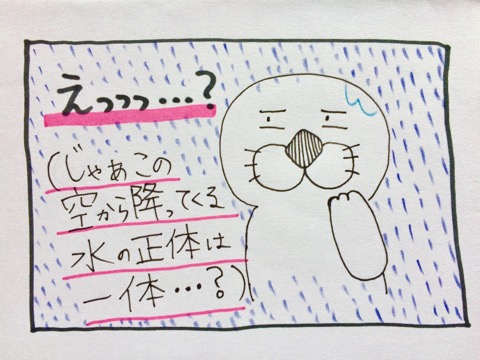 えっっっ…?
(じゃあこの
空から降ってくる
水の正体は
一体…?)